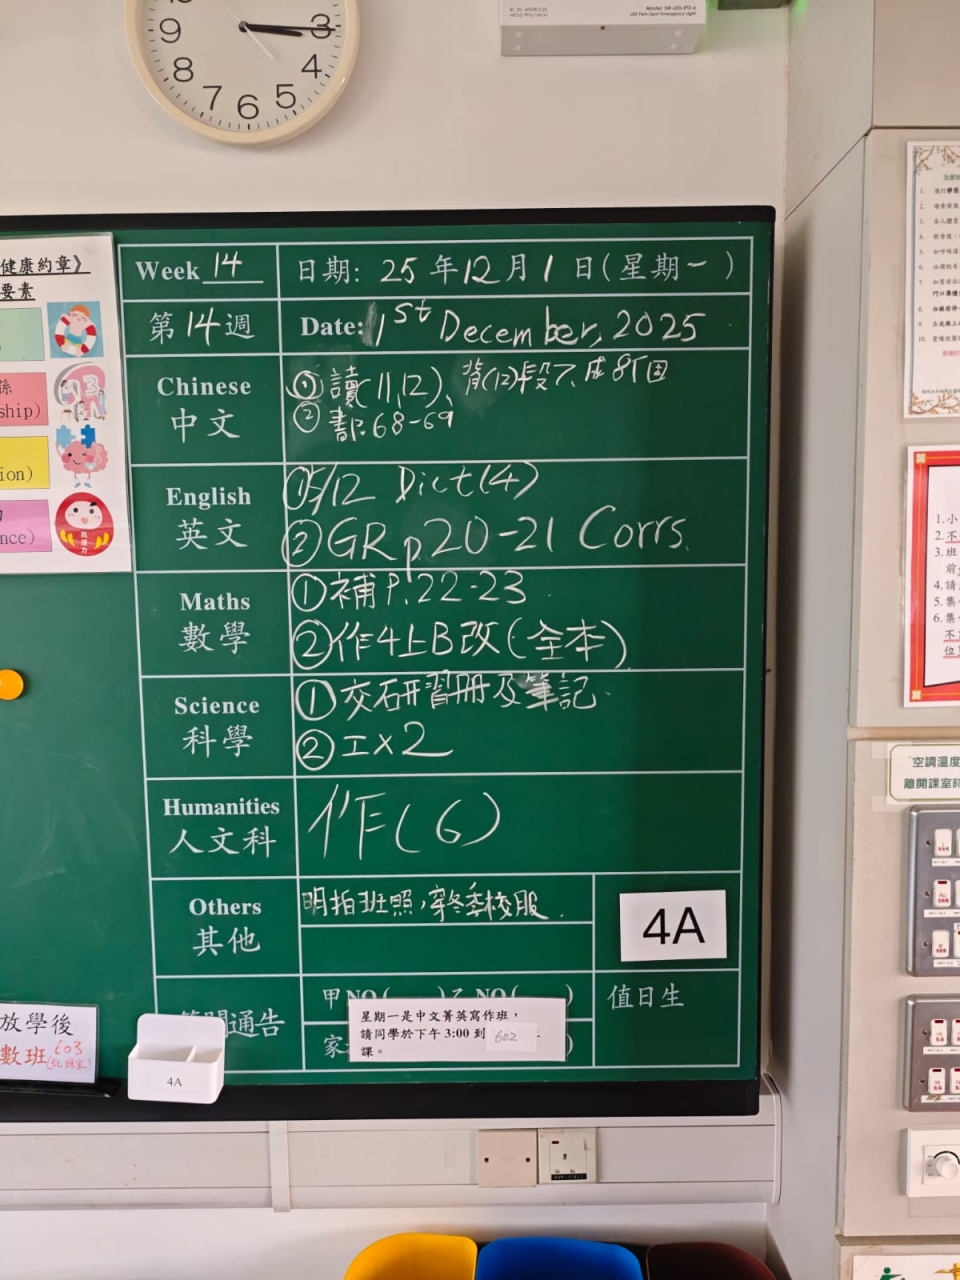 9 3
8 4
7 6 5
Model: SW-LED-2T2-6
LED Twin-Spot Emergency Light
健康約章》
要素
係
ship)
ion)
nce)
Week 14
日期: 25 年 12 月 1 日(星期一)
第 14 週
Date: 1st December, 2025
Chinese
中文
① 讀(11,12)、背(12)段7、
② 書P.68-69
English
英文
① 5/12 Dict(4)
② GR p.20-21 Corrs.
Maths
數學
① 補P.22-23
② 作4上B改(全本)
Science
科學
① 交研習冊及筆記
② 工x2
Humanities
人文科
作(6)
Others
其他
明拍班照,穿冬季校服.
4A
通告
甲NO( )乙NO( )
家
值日生
星期一是中文菁英寫作班,
請同學於下午 3:00 到 602
課。
放學後
數班 603
4A
空調溫度
離開課室時
1. 小
2. 不
3. 班
前
4. 請
5. 集
6. 集
不
位